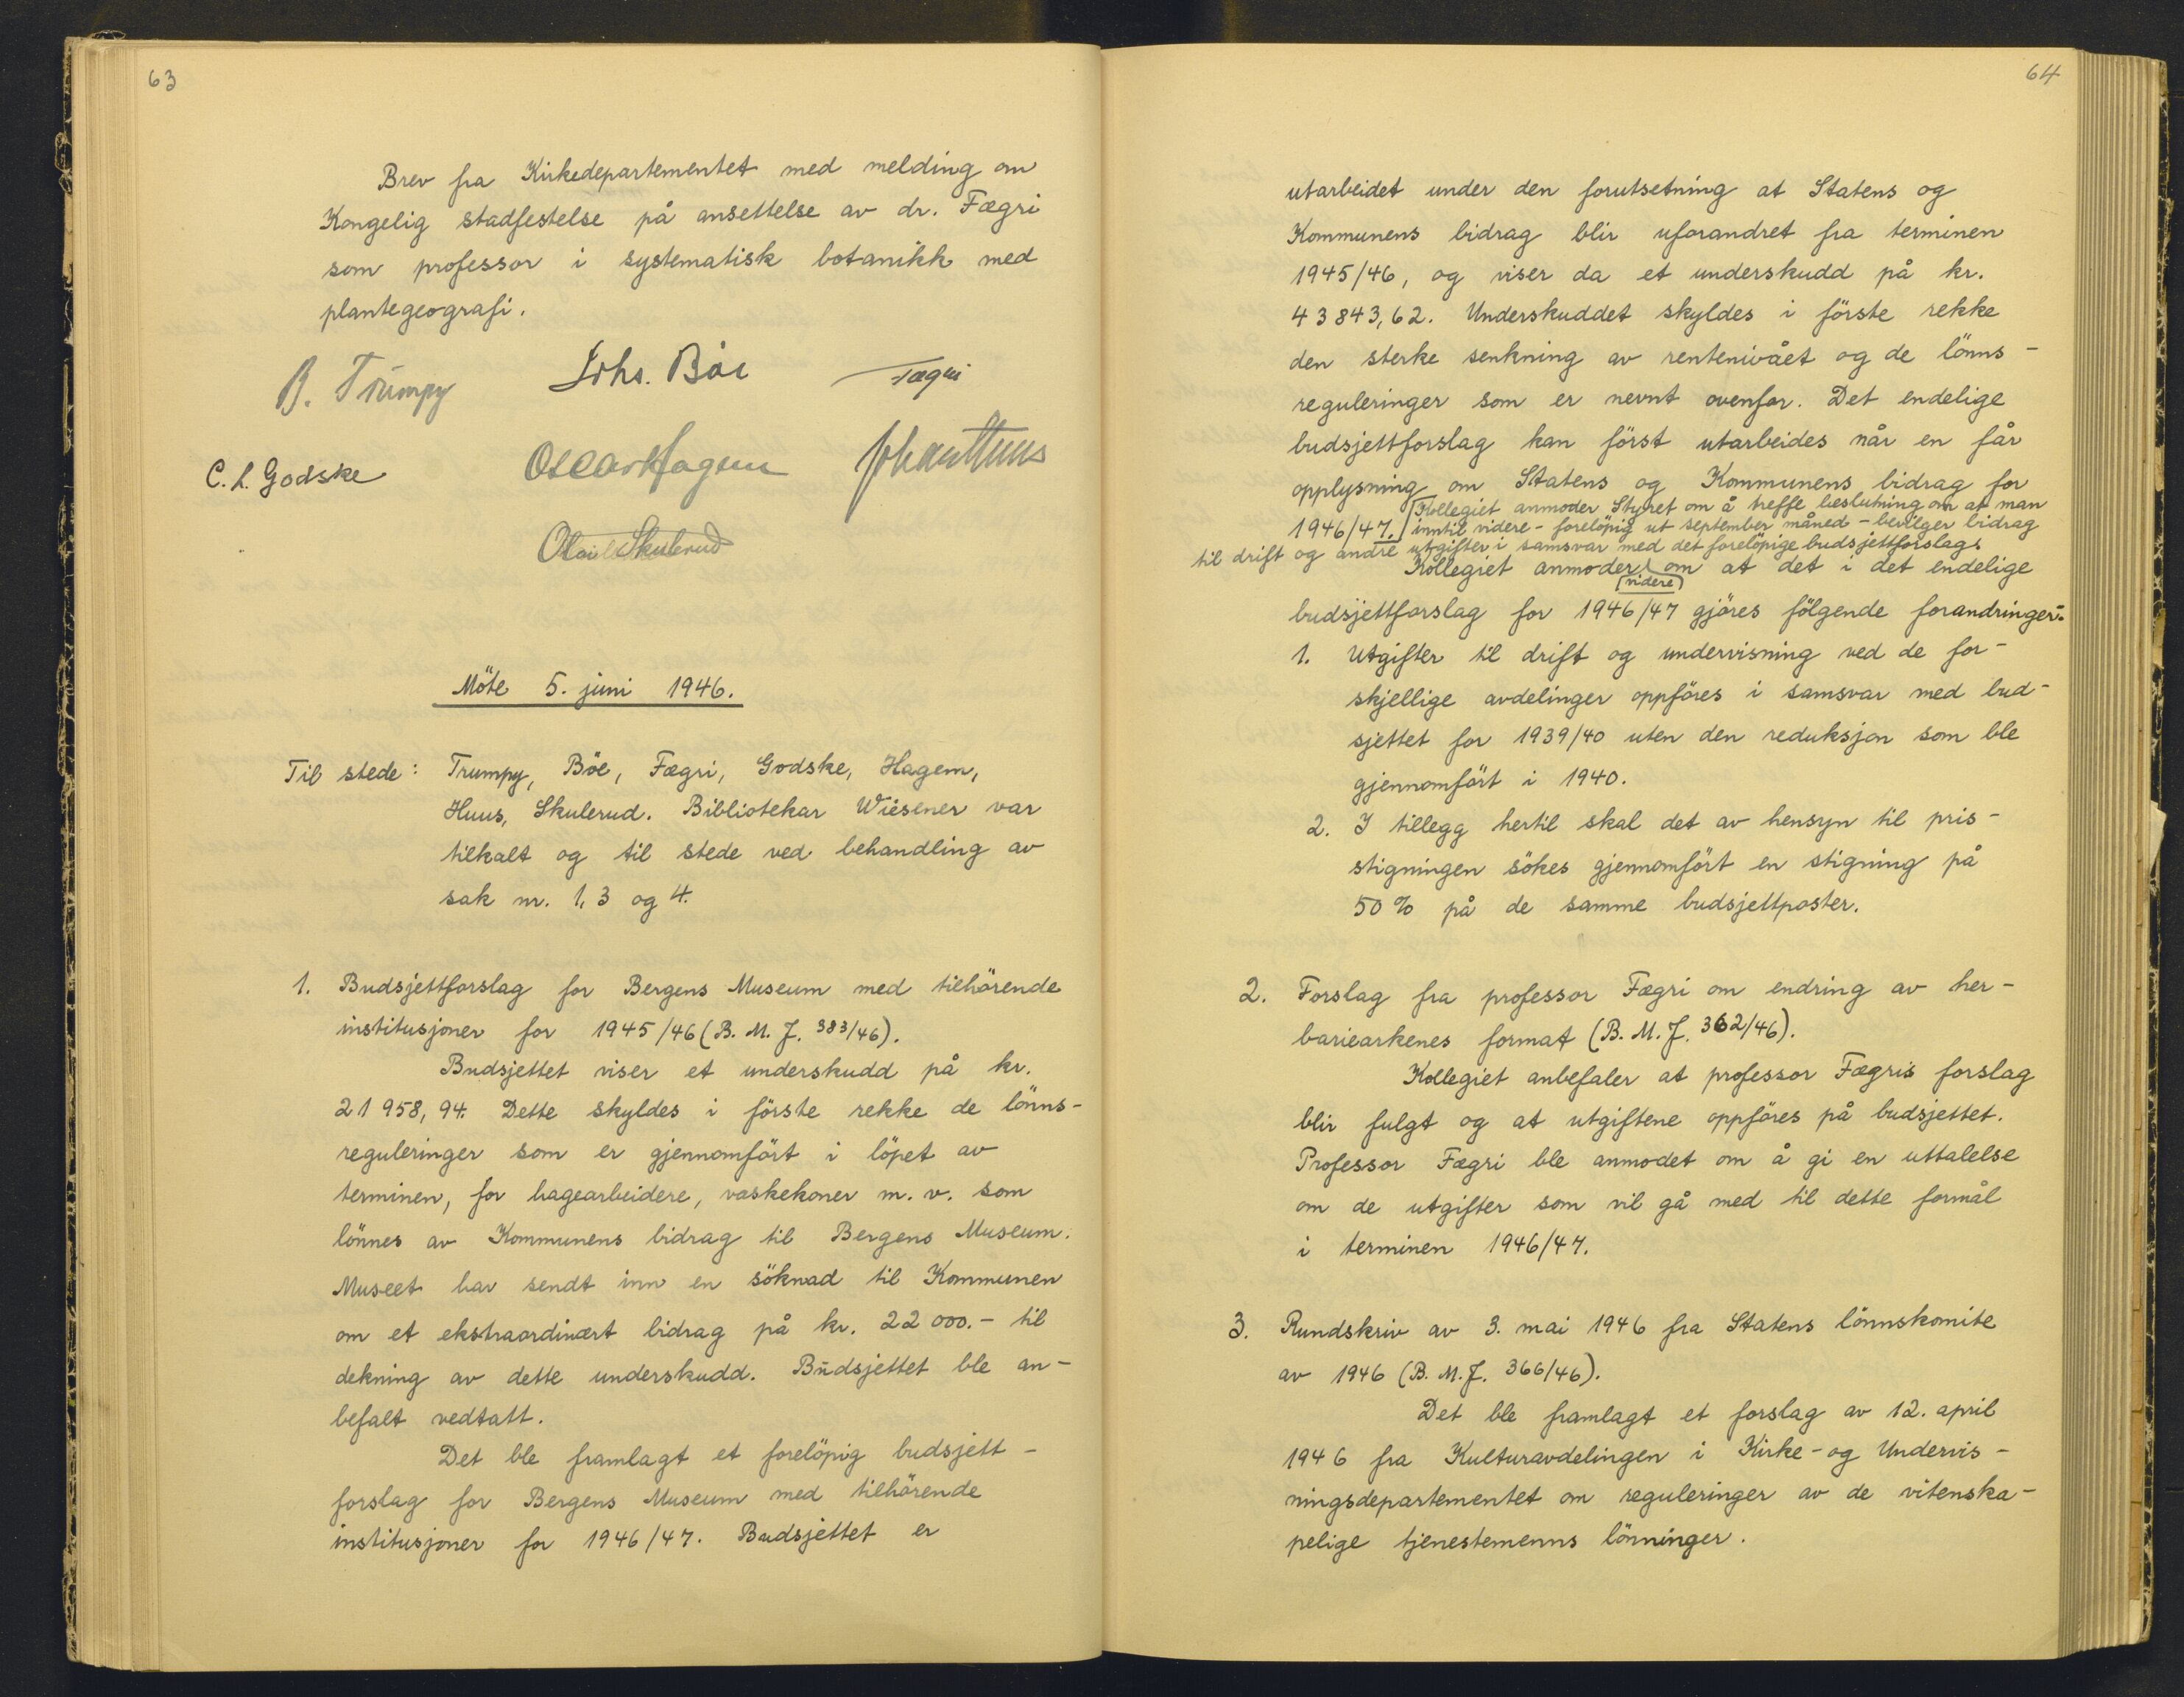 63
Brev fra Kirkedepartementet med melding om
Kongelig stadfestelse på ansettelse av dr. Fægri
som professor i systematisk botanikk med
plantegeografi.
B. Trumpy Johs. Böe Fægri
C. L. Godske Oscar Hagem Johan Huus
Olai Skulerud
Möte 5. juni 1946.
Til stede: Trumpy, Böe, Fægri, Godske, Hagem,
Huus, Skulerud. Bibliotekar Wiesener var
tilkalt og til stede ved behandling av
sak nr. 1, 3 og 4.
1. Budsjettforslag for Bergens Museum med tilhörende
institusjoner for 1945/46 (B. M. J. 383/46).
Budsjettet viser et underskudd på kr.
21 958,94. Dette skyldes i förste rekke de lönns-
reguleringer som er gjennomfört i löpet av
terminen, for hagearbeidere, vaskekoner m. v. som
lönnes av Kommunens bidrag til Bergens Museum.
Museet har sendt inn en söknad til Kommunen
om et ekstraordinært bidrag på kr. 22 000.- til
dekning av dette underskudd. Budsjettet ble an-
befalt vedtatt.
Det ble framlagt et forelöpig budsjett-
forslag for Bergens Museum med tilhörende
institusjoner for 1946/47. Budsjettet er
64
utarbeidet under den forutsetning at Statens og
Kommunens bidrag blir uforandret fra terminen
1945/46, og viser da et underskudd på kr.
43 843,62. Underskuddet skyldes i förste rekke
den sterke senkning av rentenivået og de lönns-
reguleringer som er nevnt ovenfor. Det endelige
budsjettforslag kan först utarbeides når en får
opplysning om Statens og Kommunens bidrag for
1946/47. Kollegiet anmoder Styret om å treffe beslutning om at man
inntil videre - forelöpig ut september måned - bevilger bidrag
til drift og andre utgifter i samsvar med det forelöpige budsjettforslag.
Kollegiet anmoder videre om at det i det endelige
budsjettforslag for 1946/47 gjöres fölgende forandringer:
1. Utgifter til drift og undervisning ved de for-
skjellige avdelinger oppföres i samsvar med bud-
sjettet for 1939/40 uten den reduksjon som ble
gjennomfört i 1940.
2. I tillegg hertil skal det av hensyn til pris-
stigningen sökes gjennomfört en stigning på
50 % på de samme budsjettposter.
2. Forslag fra professor Fægri om endring av her-
bariearkenes format (B. M. J. 362/46).
Kollegiet anbefaler at professor Fægris forslag
blir fulgt og at utgiftene oppföres på budsjettet.
Professor Fægri ble anmodet om å gi en uttalelse
om de utgifter som vil gå med til dette formål
i terminen 1946/47.
3. Rundskriv av 3. mai 1946 fra Statens lönnskomite
av 1946 (B. M. J. 366/46).
Det ble framlagt et forslag av 12. april
1946 fra Kulturavdelingen i Kirke- og Undervis-
ningsdepartementet om reguleringer av de vitenska-
pelige tjenestemenns lönninger.